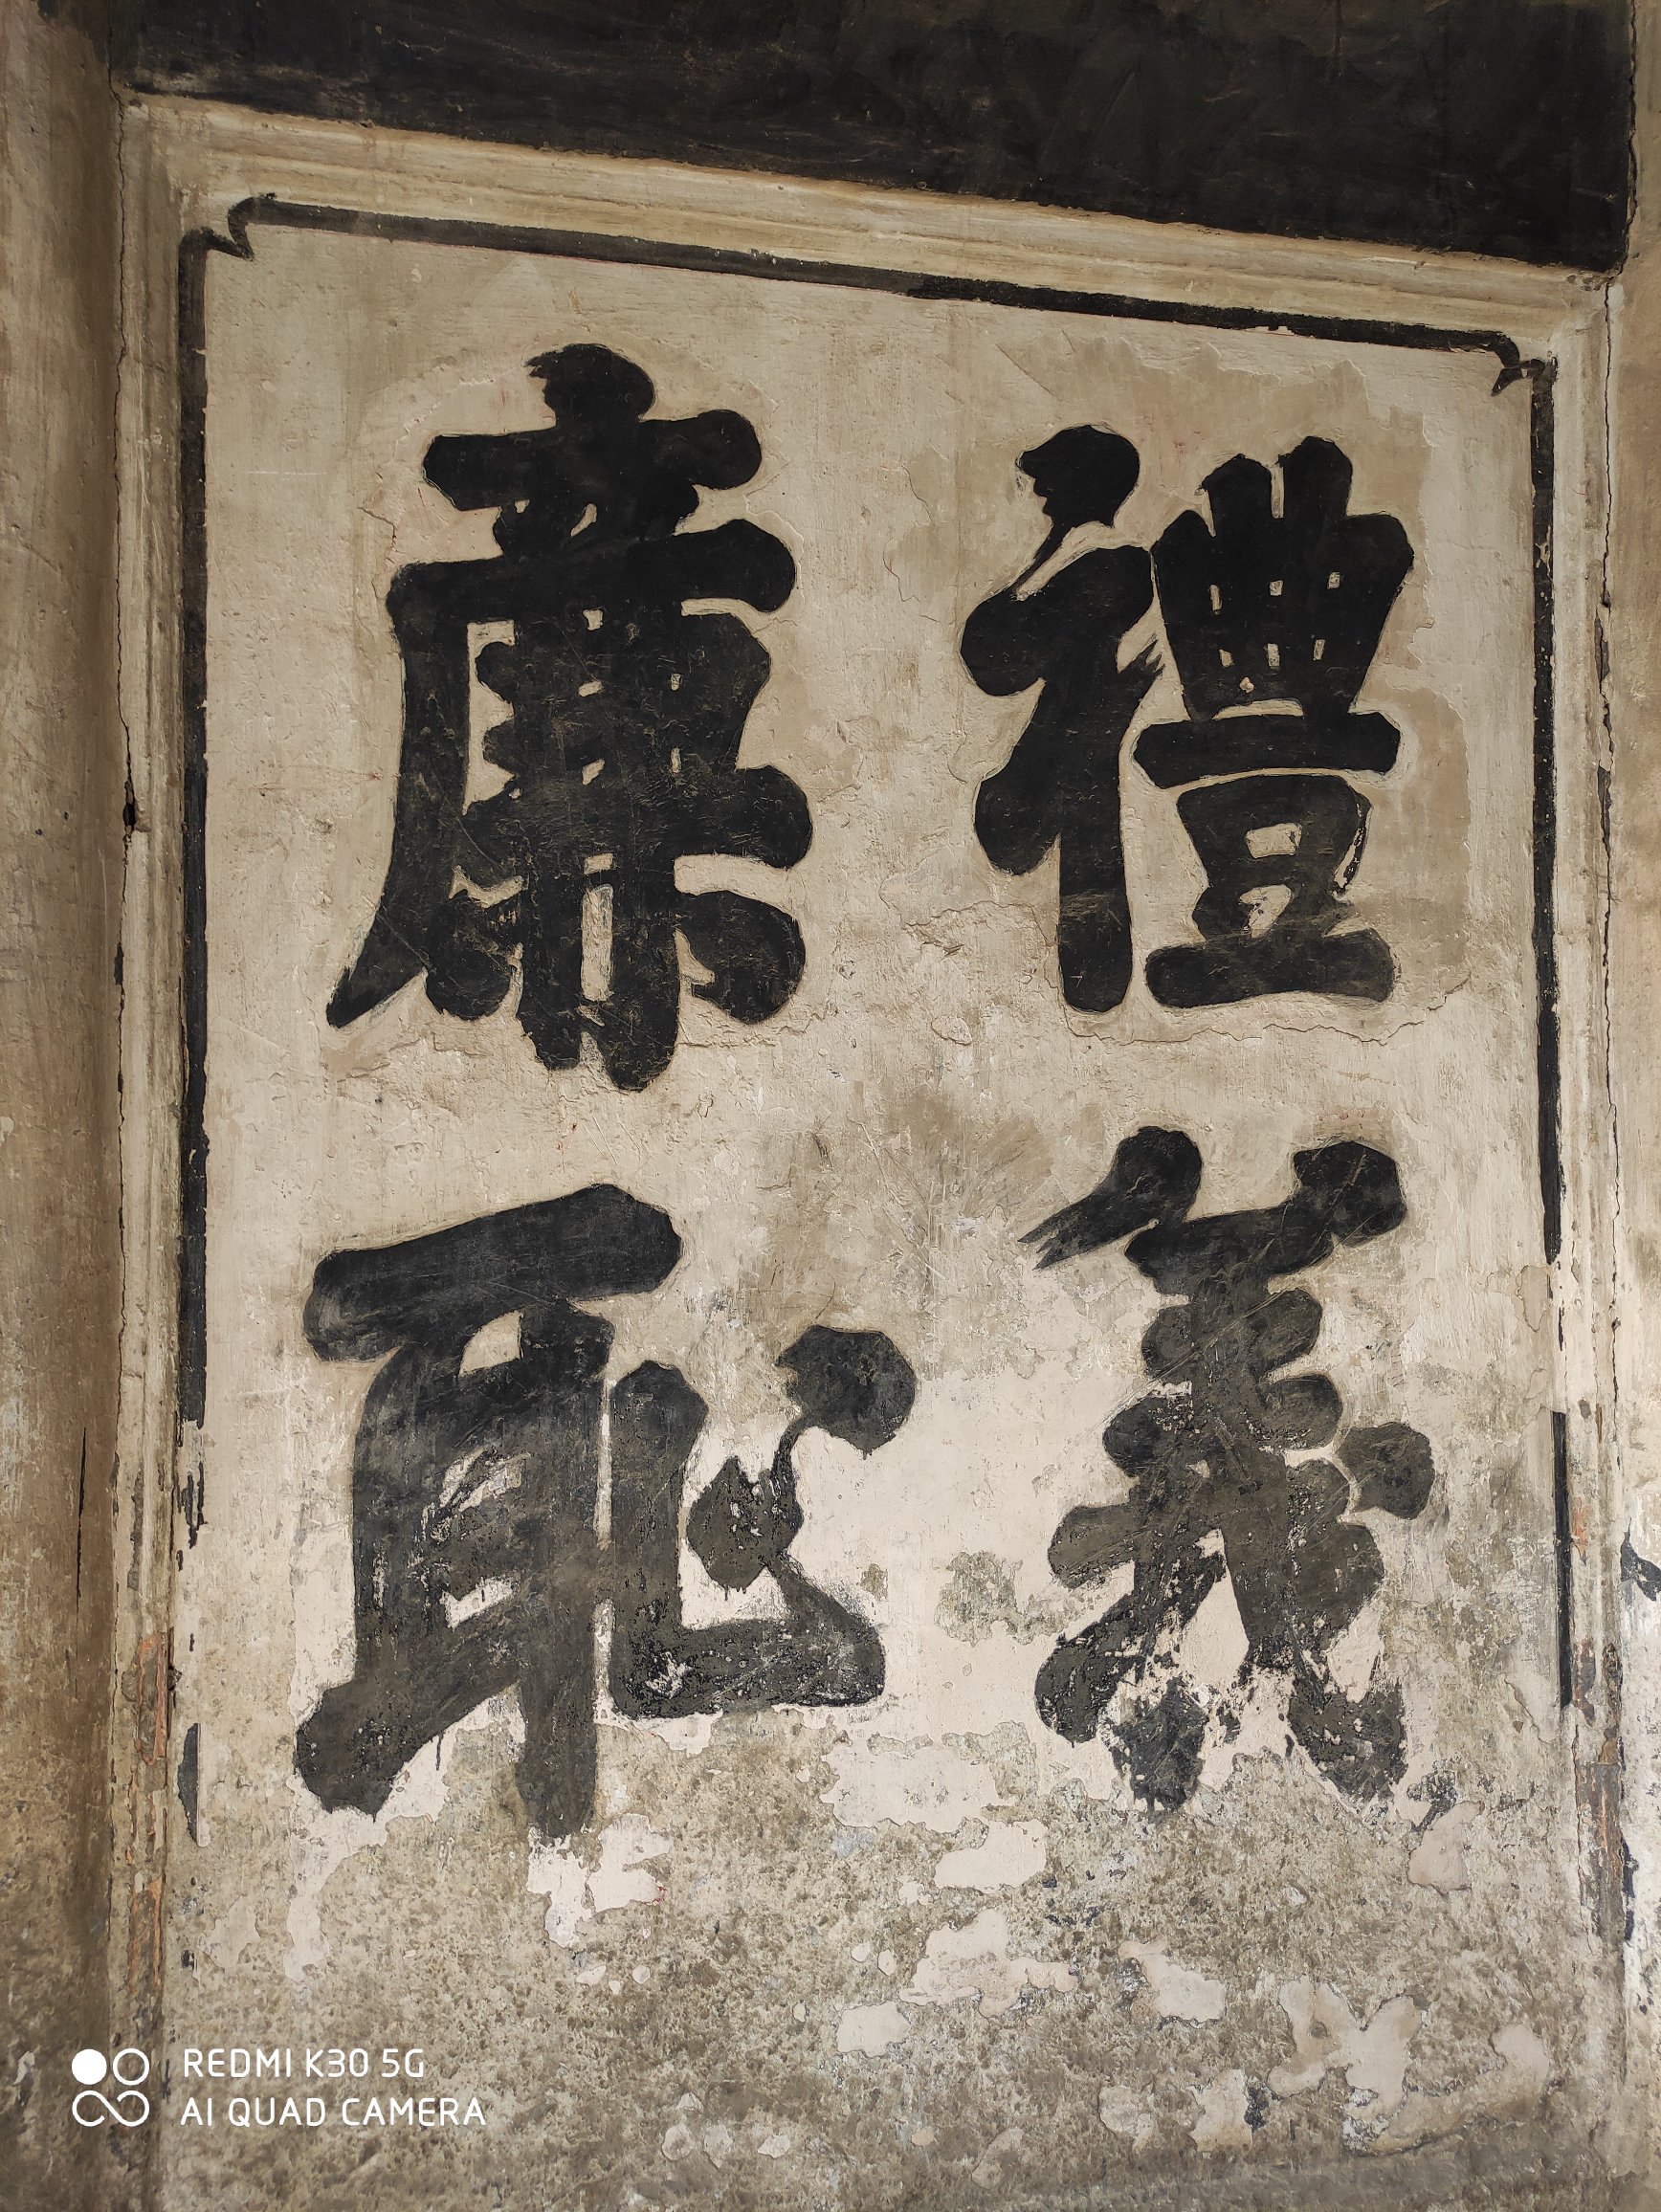 禮義
廉恥
REDMI K30 5G
AI QUAD CAMERA